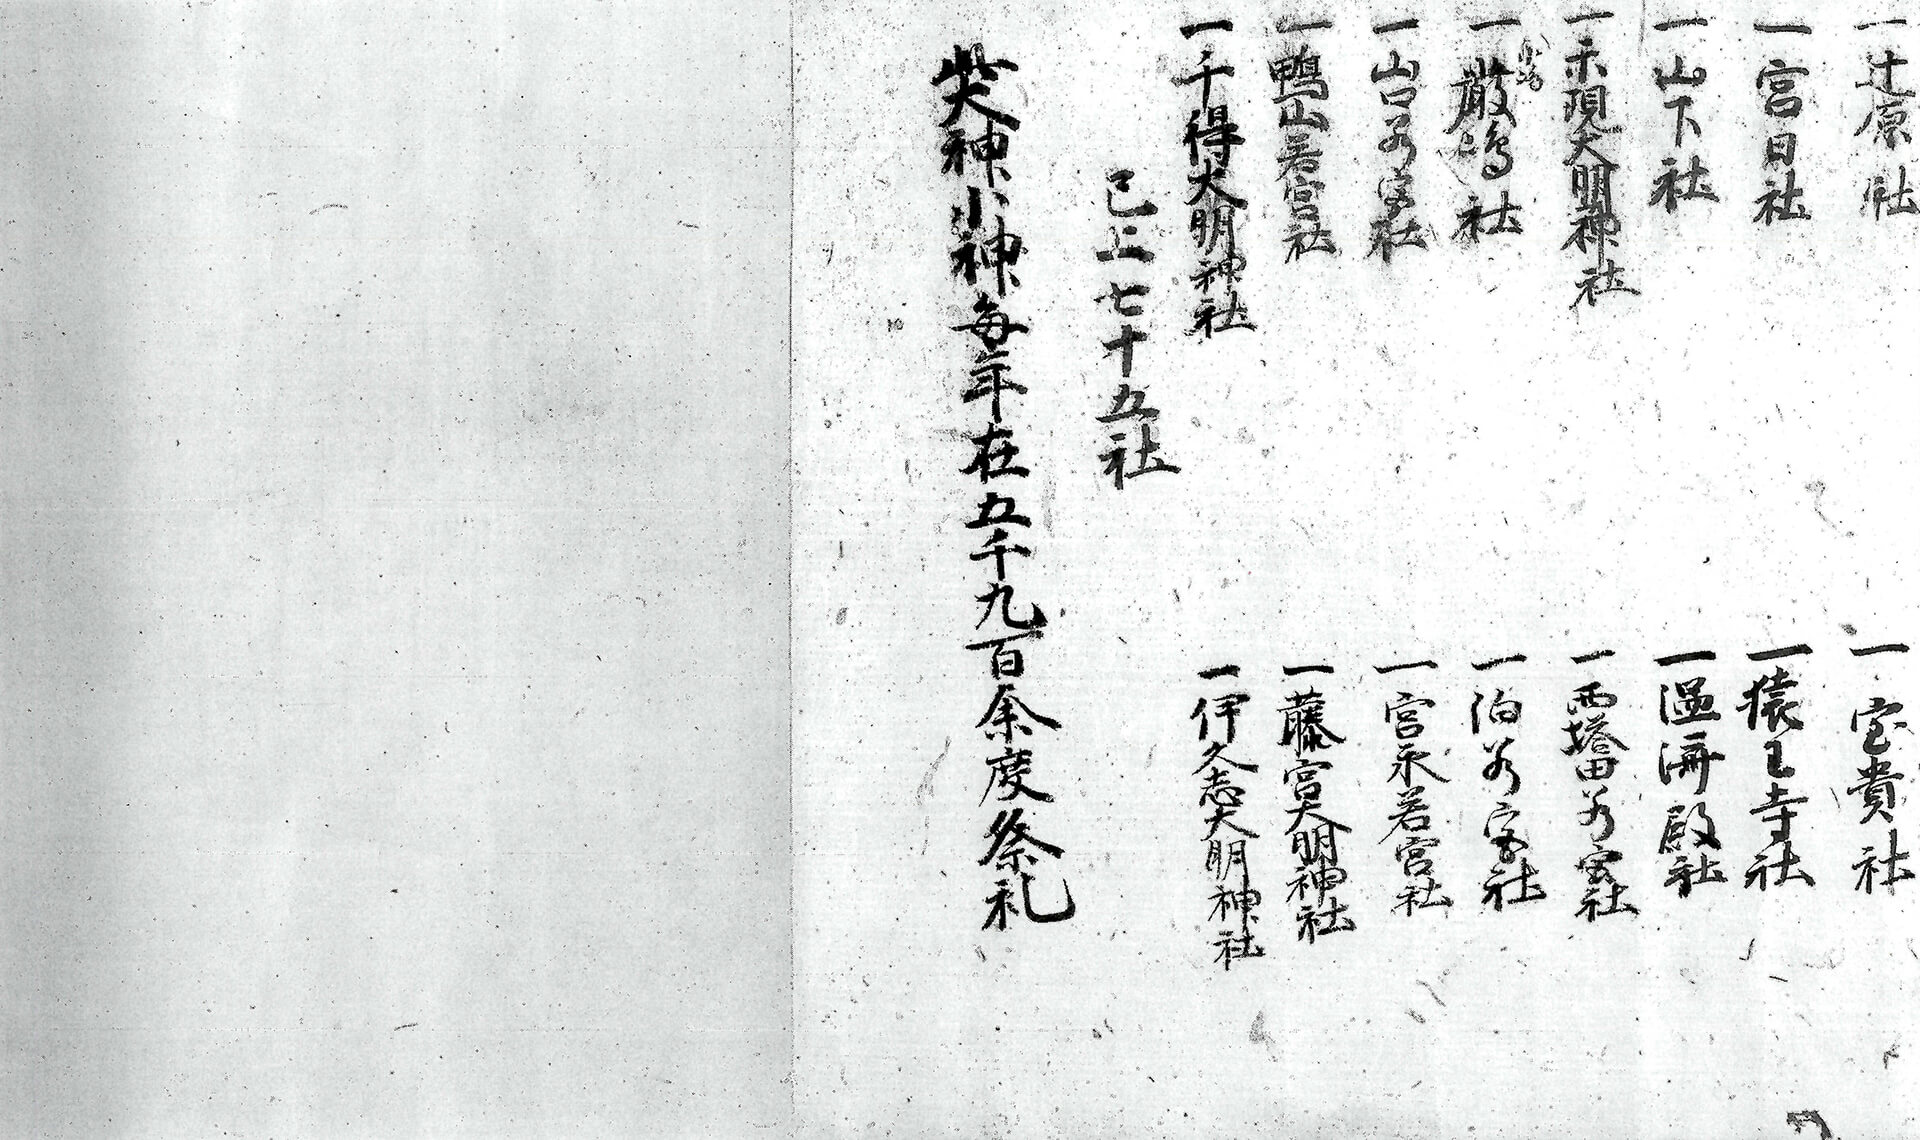 一辻原社
一宝貴社
一宮日社
一猿王寺社
一山下社
一温済殿社
一示現大明神社
一西塔田若宮社
一厳嶋社
一泊若宮社
一山口若宮社
一宮永若宮社
一鴨山若宮社
一藤宮大明神社
一千得大明神社
一伊久志大明神社
已上七十五社
此大神小神毎年在五千九百余度祭礼